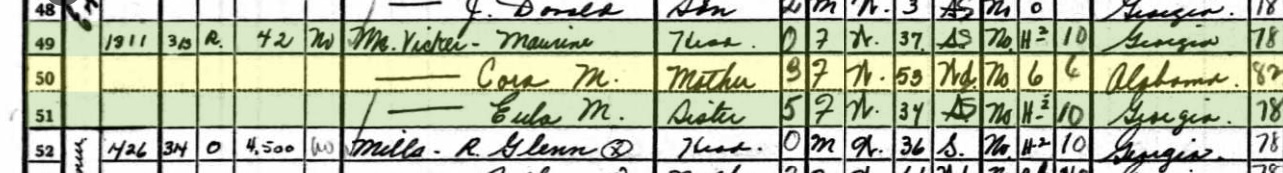 48 J. Donald Son 2 M W. 3 S No 0 Georgia 78
49 1311 313 R. 42 No Mc. Vicker - Maurine Head. 0 F W. 37 S No H-2 10 Georgia 78
50 —— Cora M. Mother 3 F W. 53 Wd. No 6 6 Alabama. 82
51 —— Eula M. Sister 5 F W. 34 S No H-2 10 Georgia. 78
52 1426 314 O 4,500 No Mills - R. Glenn ⓧ Head. 0 M W. 36 S. No. H-2 10 Georgia. 78